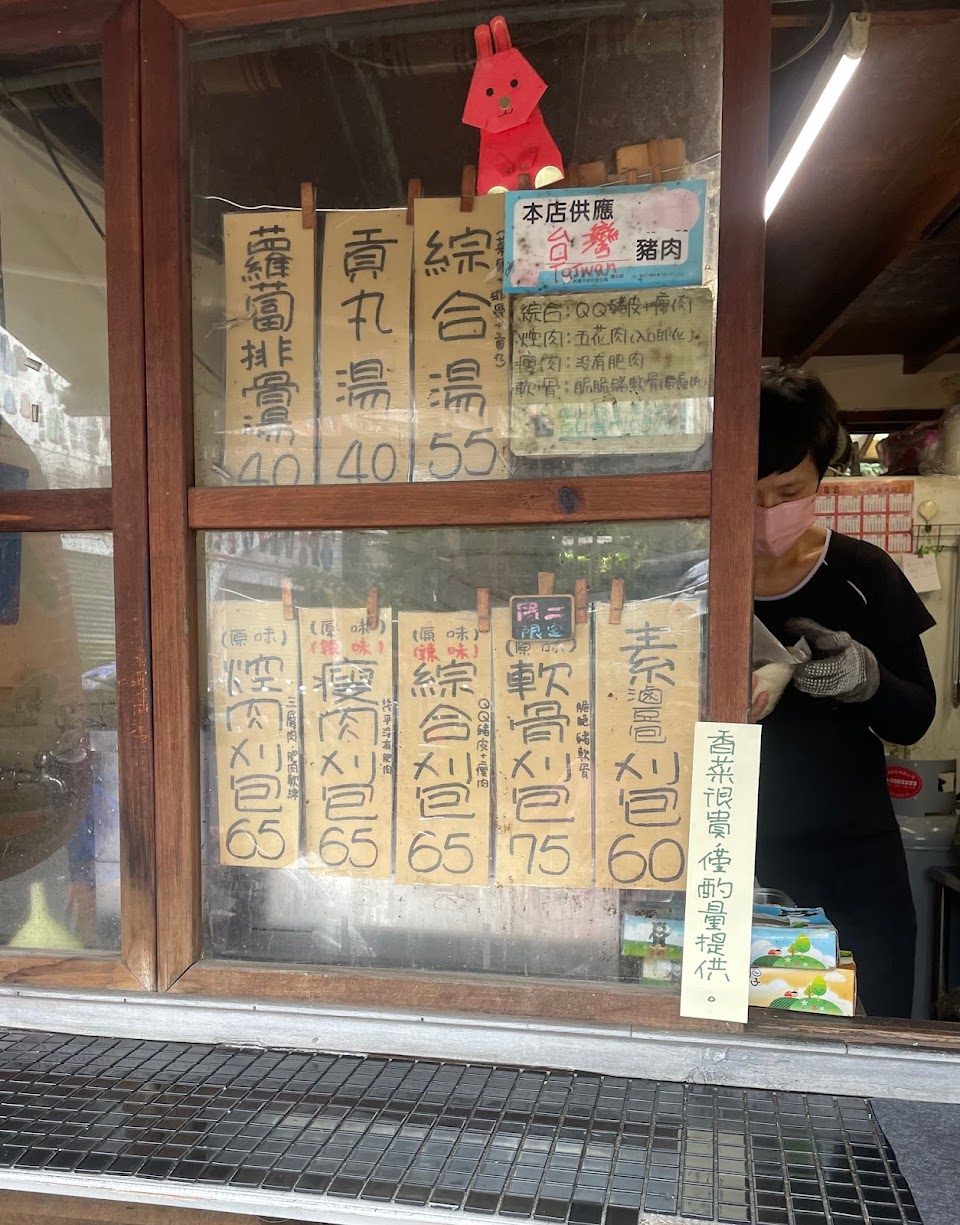 蘿蔔排骨湯 40
貢丸湯 40
綜合湯 55
本店供應
台灣
Taiwan
豬肉
綜合:QQ豬皮+瘦肉
焢肉:五花肉(入口即化)
瘦肉:没有肥肉
軟骨:脆脆豬軟骨
(原味)
焢肉刈包 65
(原味)
(辣味)
瘦肉刈包 65
幾乎沒有肥肉
(原味)
(辣味)
綜合刈包 65
QQ豬皮+瘦肉
限定
(原味)
軟骨刈包 75
脆脆豬軟骨
素滷哥刈包 60
香菜很貴僅酌量提供。